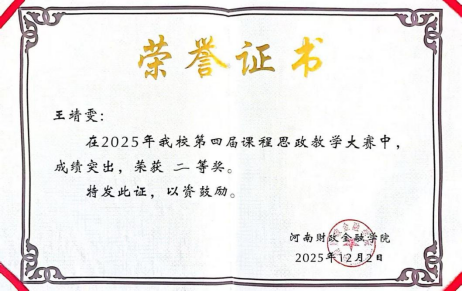 荣誉证书
王靖雯:
在2025年我校第四届课程思政教学大赛中,
成绩突出, 荣获 二等奖。
特发此证, 以资鼓励。
河南财政金融学院
2025年12月2日